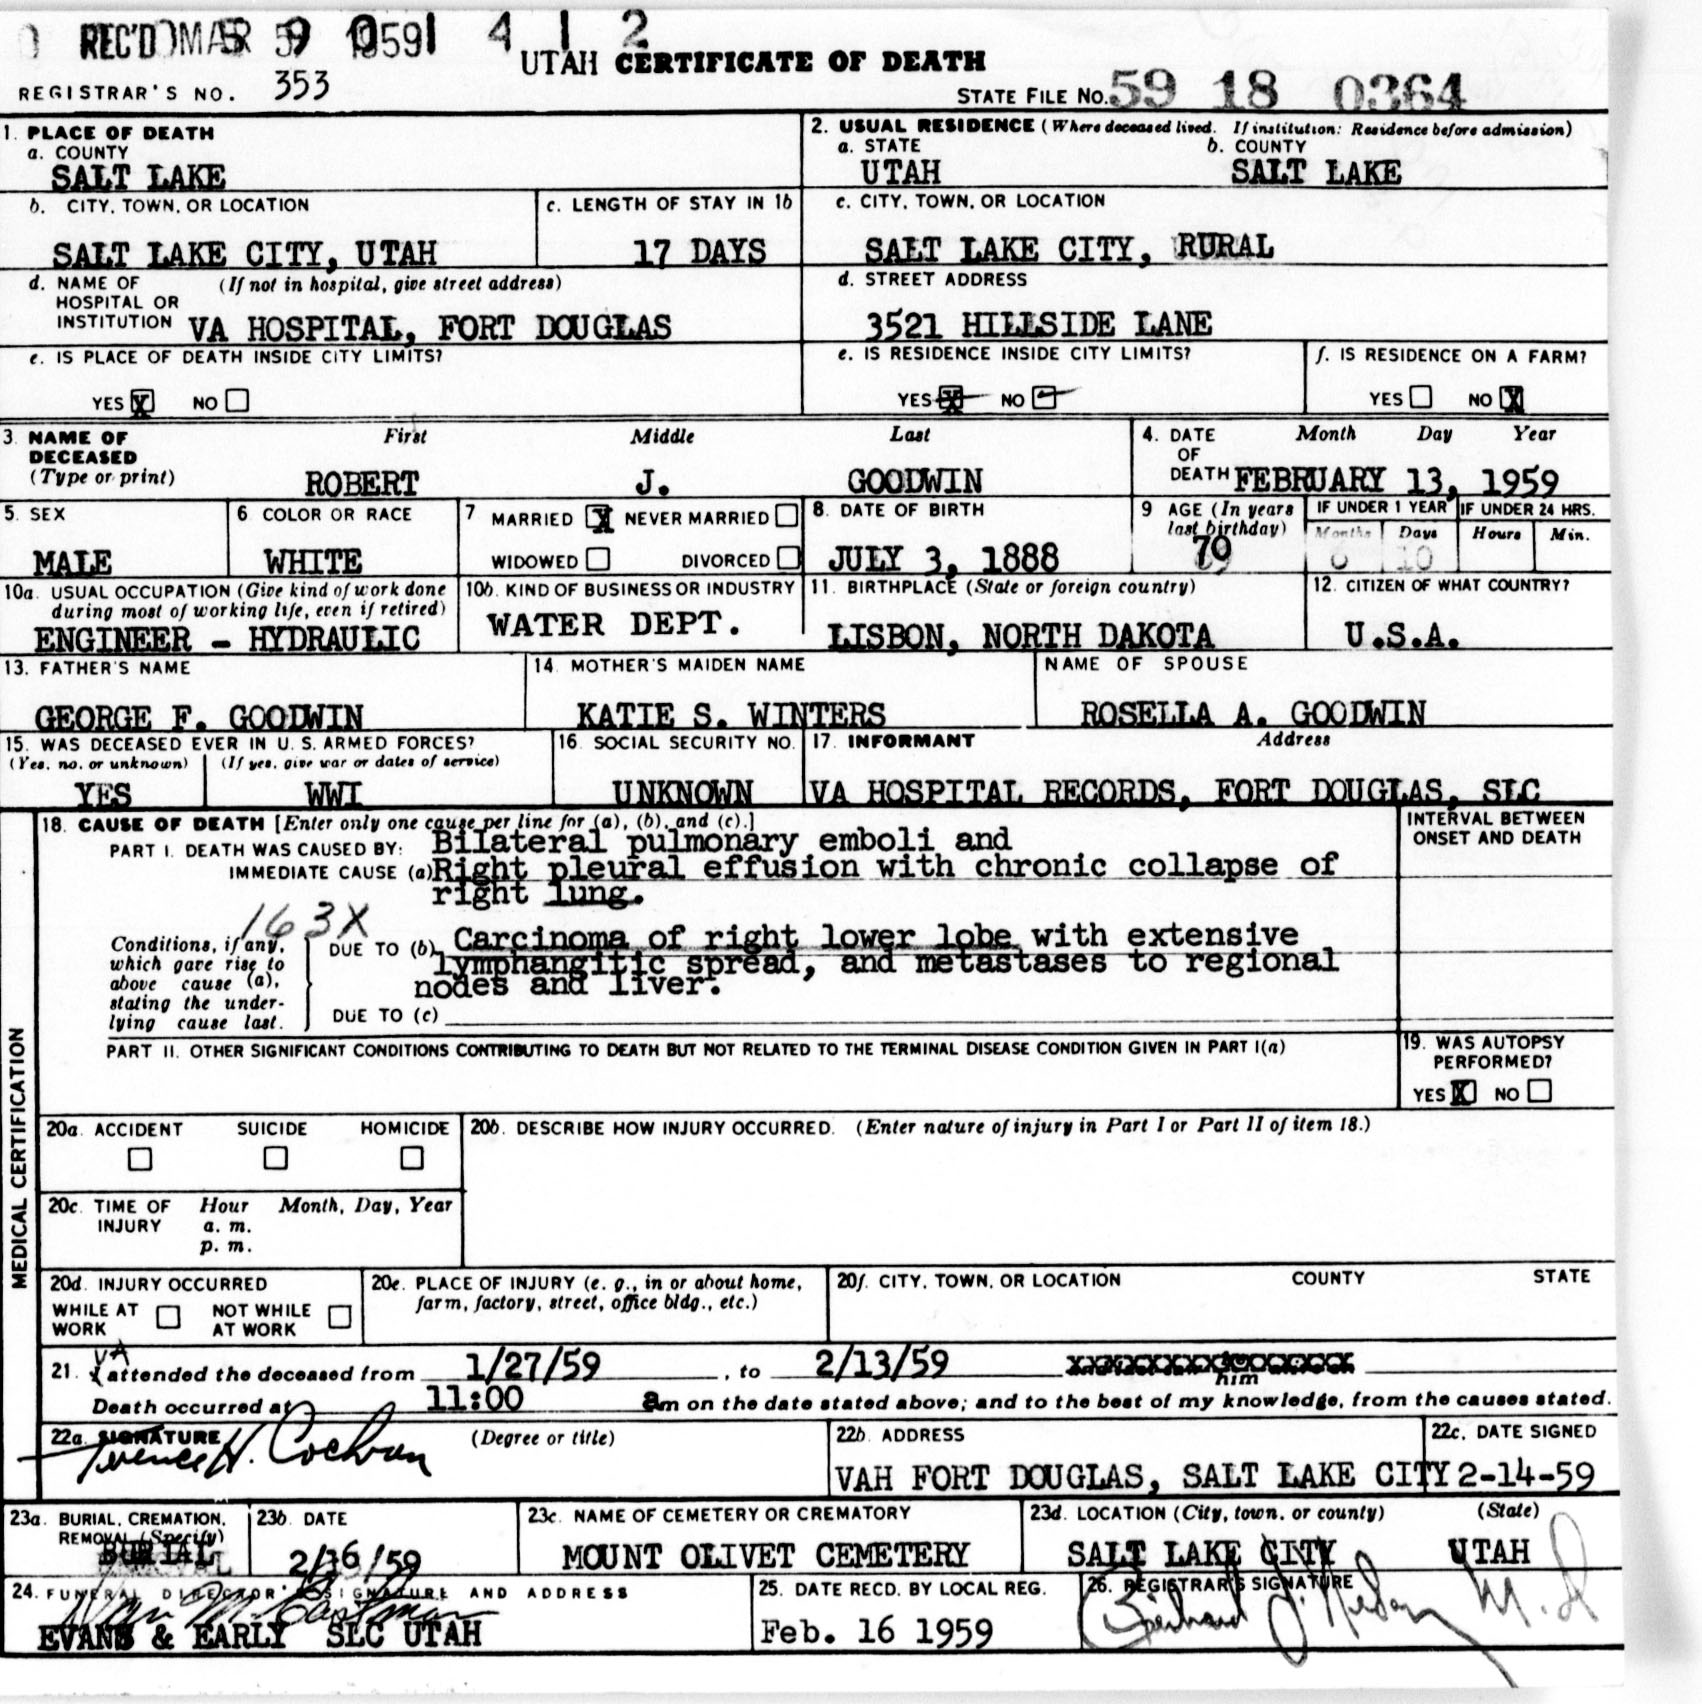 REC'D MAR 9 1959 1 4 1 2
UTAH CERTIFICATE OF DEATH
REGISTRAR'S NO. 353
STATE FILE NO. 59 18 0364
1. PLACE OF DEATH
a. COUNTY
SALT LAKE
2. USUAL RESIDENCE (Where deceased lived. If institution: Residence before admission)
a. STATE b. COUNTY
UTAH SALT LAKE
b. CITY, TOWN, OR LOCATION
SALT LAKE CITY, UTAH
c. LENGTH OF STAY IN 1b
17 DAYS
c. CITY, TOWN, OR LOCATION
SALT LAKE CITY, RURAL
d. NAME OF (If not in hospital, give street address)
HOSPITAL OR
INSTITUTION VA HOSPITAL, FORT DOUGLAS
d. STREET ADDRESS
3521 HILLSIDE LANE
e. IS PLACE OF DEATH INSIDE CITY LIMITS?
YES X NO
e. IS RESIDENCE INSIDE CITY LIMITS?
YES X NO
f. IS RESIDENCE ON A FARM?
YES NO X
3. NAME OF First Middle Last
DECEASED
(Type or print) ROBERT J. GOODWIN
4. DATE Month Day Year
OF
DEATH FEBRUARY 13, 1959
5. SEX
MALE
6 COLOR OR RACE
WHITE
7 MARRIED X NEVER MARRIED
WIDOWED DIVORCED
8. DATE OF BIRTH
JULY 3, 1888
9 AGE (In years
last birthday)
70
IF UNDER 1 YEAR IF UNDER 24 HRS.
Months Days Hours Min.
10
10a. USUAL OCCUPATION (Give kind of work done
during most of working life, even if retired)
ENGINEER - HYDRAULIC
10b. KIND OF BUSINESS OR INDUSTRY
WATER DEPT.
11. BIRTHPLACE (State or foreign country)
LISBON, NORTH DAKOTA
12. CITIZEN OF WHAT COUNTRY?
U.S.A.
13. FATHER'S NAME
GEORGE F. GOODWIN
14. MOTHER'S MAIDEN NAME
KATIE S. WINTERS
NAME OF SPOUSE
ROSELLA A. GOODWIN
15. WAS DECEASED EVER IN U. S. ARMED FORCES?
(Yes, no, or unknown) (If yes, give war or dates of service)
YES WWI
16. SOCIAL SECURITY NO.
UNKNOWN
17. INFORMANT Address
VA HOSPITAL RECORDS, FORT DOUGLAS, SLC
MEDICAL CERTIFICATION
18. CAUSE OF DEATH [Enter only one cause per line for (a), (b), and (c).]
PART I. DEATH WAS CAUSED BY: Bilateral pulmonary emboli and
IMMEDIATE CAUSE (a) Right pleural effusion with chronic collapse of
right lung.
INTERVAL BETWEEN
ONSET AND DEATH
163X
Conditions, if any,
which gave rise to
above cause (a),
stating the under-
lying cause last.
DUE TO (b) Carcinoma of right lower lobe with extensive
lymphangitic spread, and metastases to regional
nodes and liver.
DUE TO (c)
PART II. OTHER SIGNIFICANT CONDITIONS CONTRIBUTING TO DEATH BUT NOT RELATED TO THE TERMINAL DISEASE CONDITION GIVEN IN PART I(a)
19. WAS AUTOPSY
PERFORMED?
YES X NO
20a. ACCIDENT SUICIDE HOMICIDE
20b. DESCRIBE HOW INJURY OCCURRED. (Enter nature of injury in Part I or Part II of item 18.)
20c. TIME OF Hour Month, Day, Year
INJURY a. m.
p. m.
20d. INJURY OCCURRED
WHILE AT NOT WHILE
WORK AT WORK
20e. PLACE OF INJURY (e. g., in or about home,
farm, factory, street, office bldg., etc.)
20f. CITY, TOWN, OR LOCATION COUNTY STATE
VA
21. I attended the deceased from 1/27/59 , to 2/13/59
him
Death occurred at 11:00 am on the date stated above; and to the best of my knowledge, from the causes stated.
22a. SIGNATURE (Degree or title)
Terence H. Cochran
22b. ADDRESS
VAH FORT DOUGLAS, SALT LAKE CITY
22c. DATE SIGNED
2-14-59
23a. BURIAL, CREMATION,
REMOVAL (Specify)
BURIAL
23b. DATE
2/16/59
23c. NAME OF CEMETERY OR CREMATORY
MOUNT OLIVET CEMETERY
23d. LOCATION (City, town, or county) (State)
SALT LAKE CITY UTAH
24. FUNERAL DIRECTOR'S SIGNATURE AND ADDRESS
EVANS & EARLY SLC UTAH
25. DATE RECD. BY LOCAL REG.
Feb. 16 1959
26. REGISTRAR'S SIGNATURE
M.D